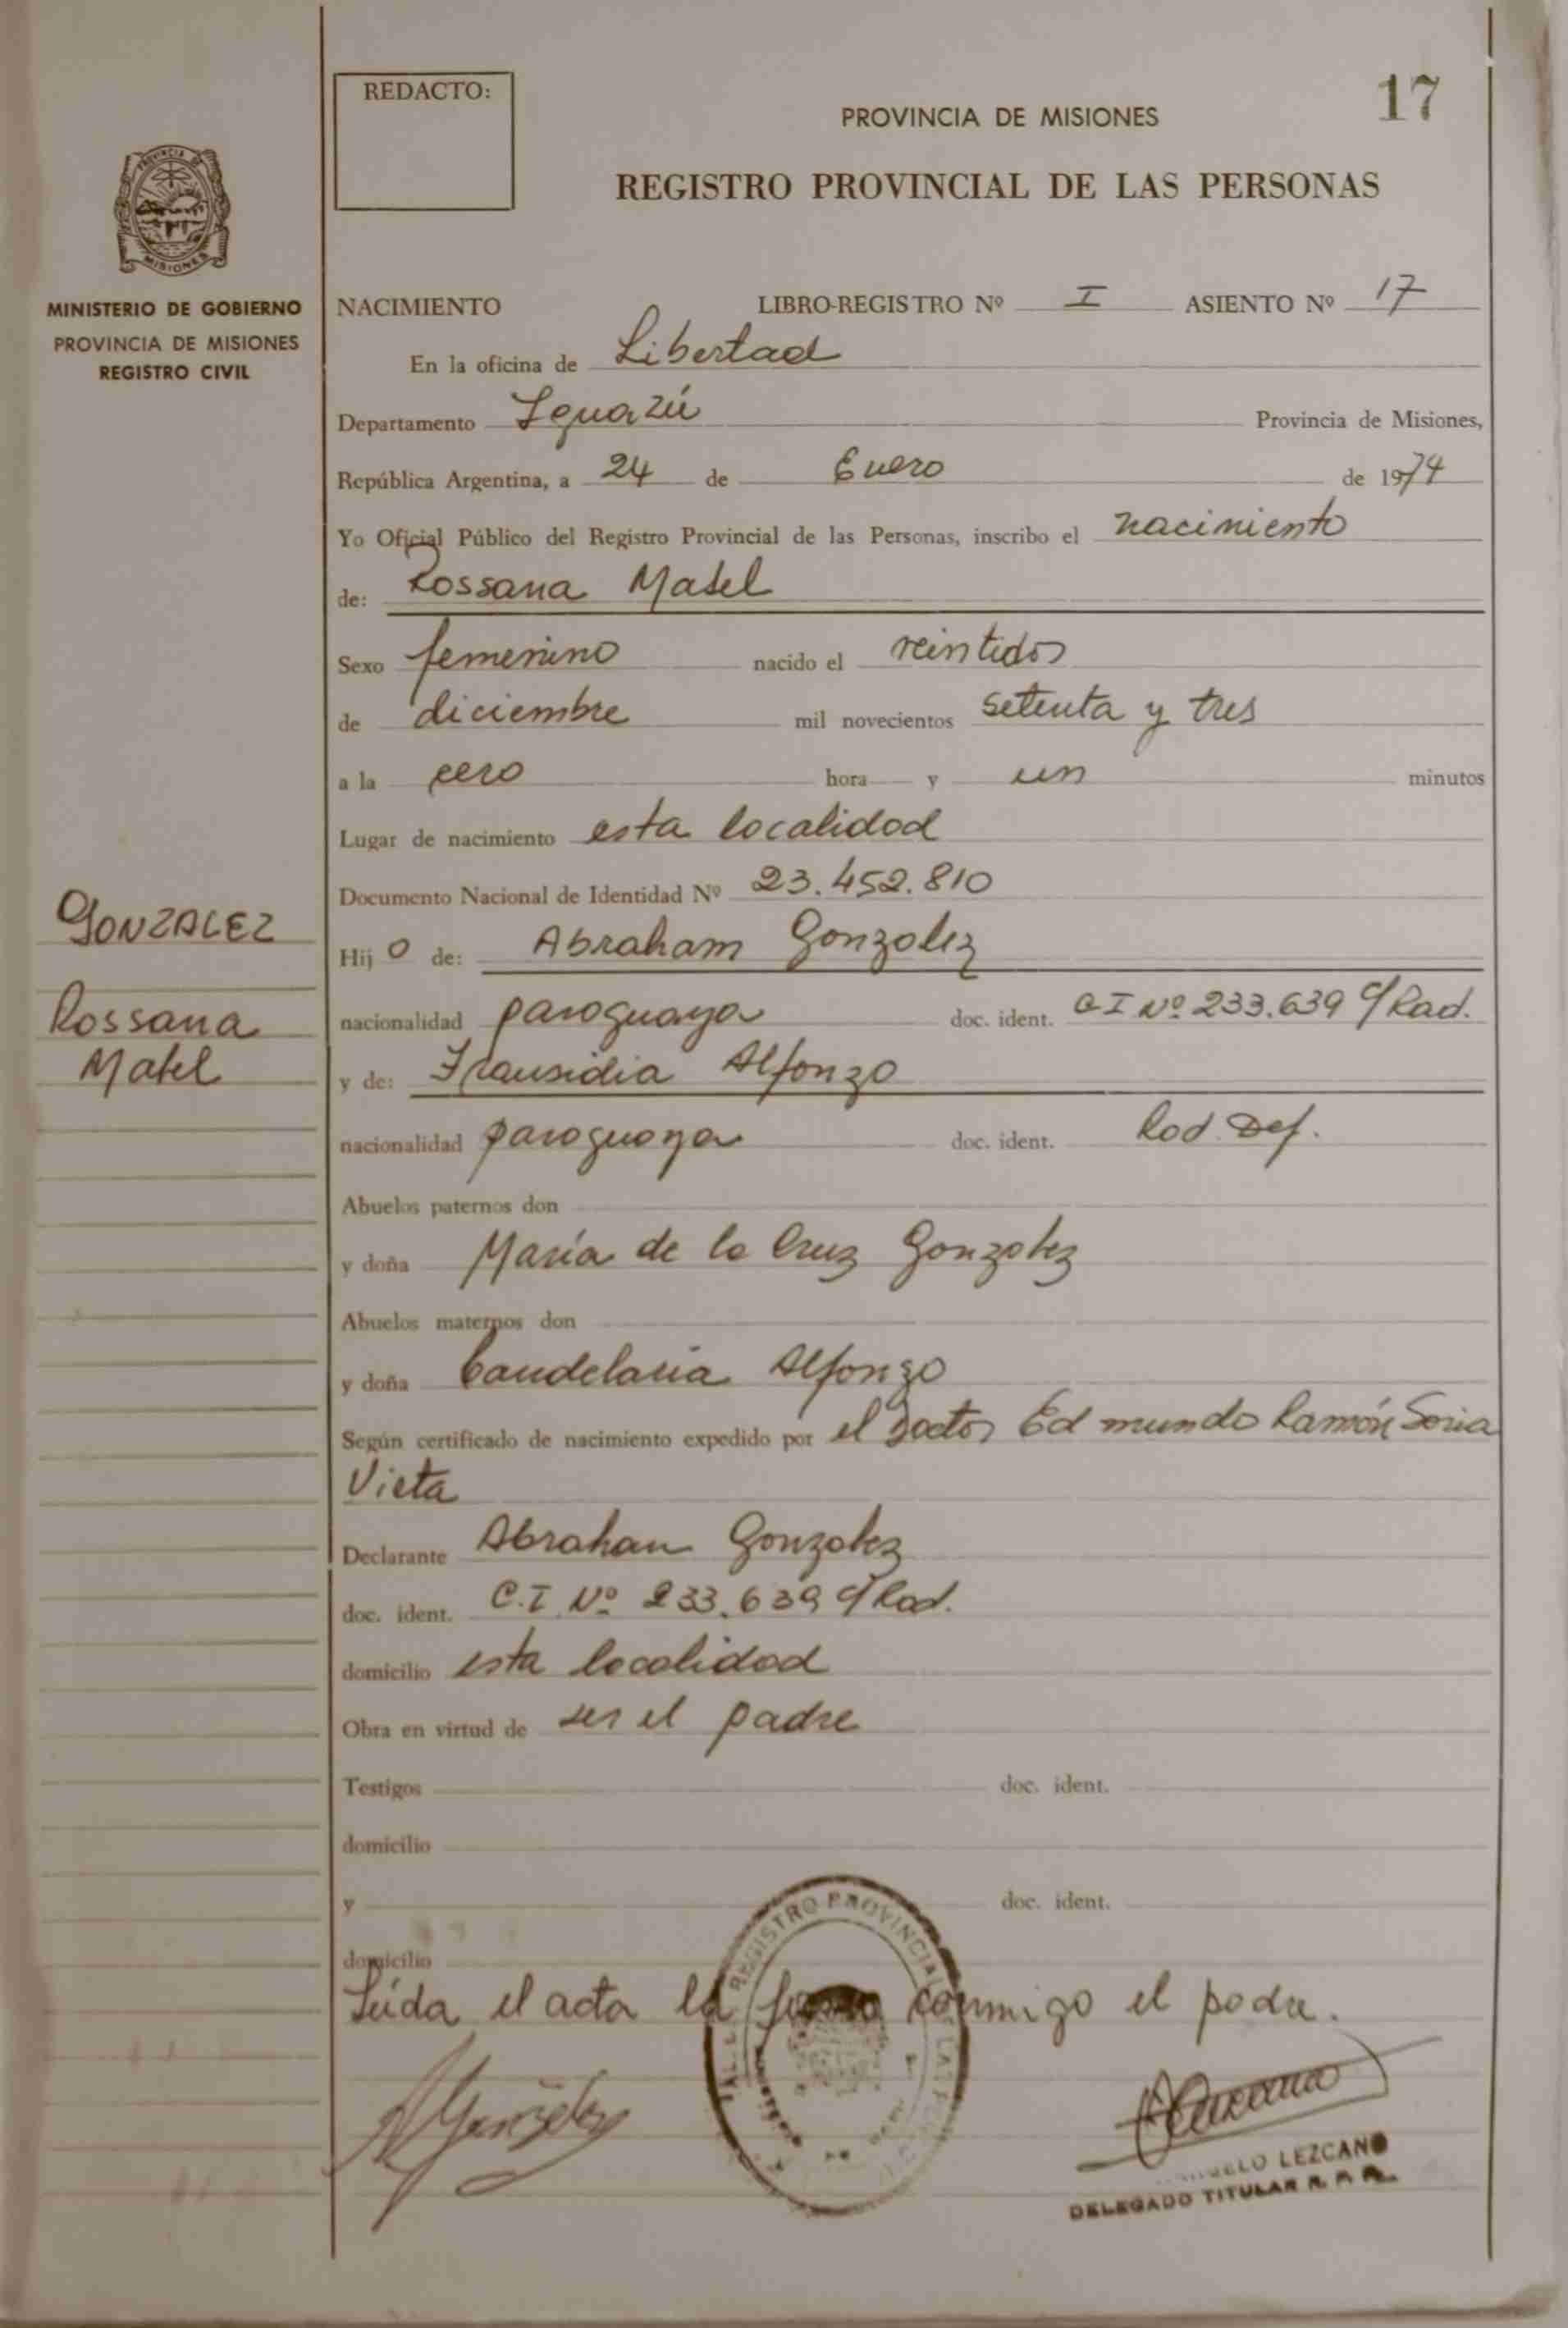 REDACTO:
17
PROVINCIA DE MISIONES
REGISTRO PROVINCIAL DE LAS PERSONAS
MISIONES
MINISTERIO DE GOBIERNO
PROVINCIA DE MISIONES
REGISTRO CIVIL
NACIMIENTO LIBRO-REGISTRO Nº I ASIENTO Nº 17
En la oficina de Libertad
Departamento Iguazú Provincia de Misiones,
República Argentina, a 24 de Enero de 1974
Yo Oficial Público del Registro Provincial de las Personas, inscribo el nacimiento
de: Rossana Mabel
Sexo femenino nacido el veintidos
de diciembre mil novecientos setenta y tres
a la cero hora y un minutos
Lugar de nacimiento esta localidad
Documento Nacional de Identidad Nº 23.452.810
GONZALEZ
Rossana
Mabel
Hij o de: Abraham Gonzalez
nacionalidad paraguaya doc. ident. C I Nº 233.639 c/ Rad.
y de: Alfonzo
nacionalidad paraguaya doc. ident. Rad. Def.
Abuelos paternos don
y doña María de la Cruz Gonzalez
Abuelos maternos don
y doña Candelaria Alfonzo
Según certificado de nacimiento expedido por el Doctor Edmundo Ramón Soria
Vieta
Declarante Abrahan Gonzalez
doc. ident. C.I. Nº 233.639 c/ Rad.
domicilio esta localidad
Obra en virtud de ser el padre
Testigos doc. ident.
domicilio
y doc. ident.
domicilio
Leída el acta la firma conmigo el padre.
REGISTRO PROVINCIAL DE LAS
LEZCANO
DELEGADO TITULAR R. P. P.